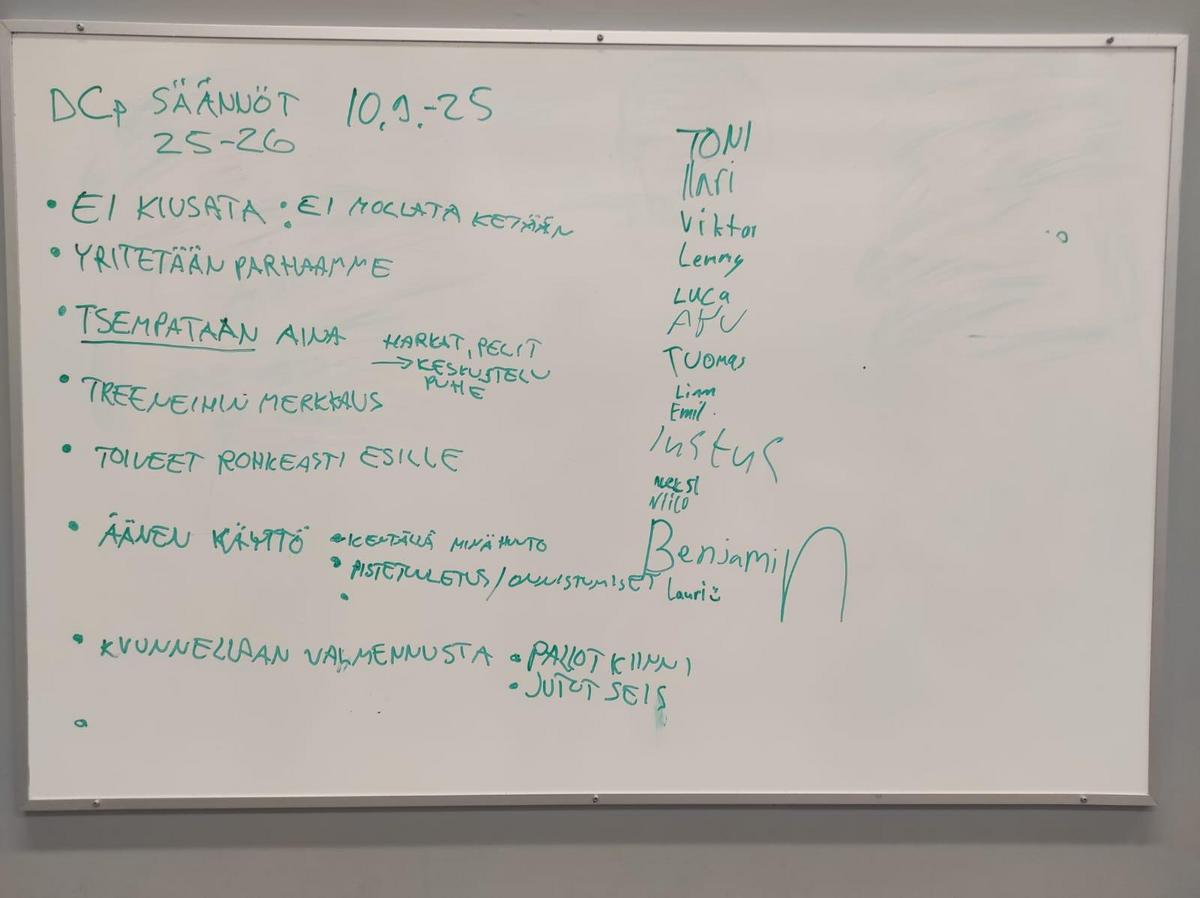 DCp SÄÄNNÖT 10.9.-25
25-26
• EI KIUSATA : EI MOLLATA KETÄÄN
• YRITETÄÄN PARHAAMME
• TSEMPATAAN AINA HARKAT, PELIT
→ KESKUSTELU
PUHE
• TREENEIHIN MERKKAUS
• TOIVEET ROHKEASTI ESILLE
• ÄÄNEN KÄYTTÖ • KENTÄLLÄ MINÄ HUUTO
• PISTETULETUS/ONNISTUMISET
• KUUNNELLAAN VALMENNUSTA • PALLOT KIINNI
• JUTUT SEIS
TONI
Ilari
Viktor
Lenny
LUCA
TUOMAS
Liam
Emil
Justus
Niilo
Benjamin
Lauri